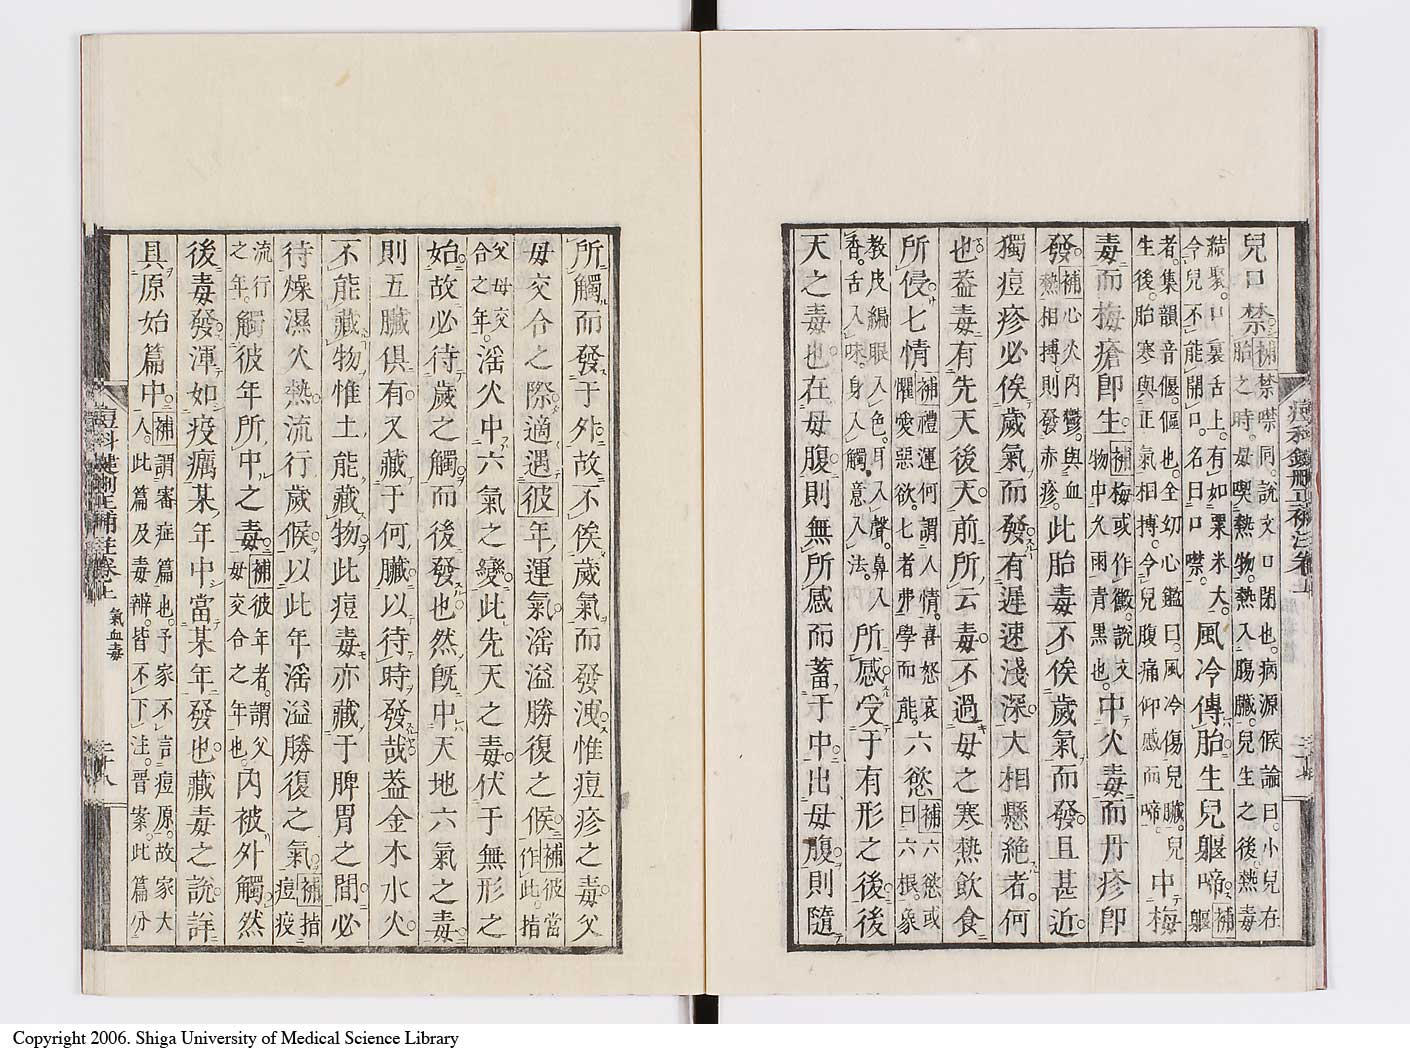 兒口禁補禁噤同說文口閉也病源候論曰小兒在胎之時母喫熱物熱入腸臟兒生之後熱毒
結聚口裏舌上有如粟米大風冷傳胎生兒軀啼補軀
今兒不能開口名曰口噤
者集韻音偃傴也全幼心鑑曰風冷傷兒臟兒中梅
生後胎寒與正氣相搏令兒腹痛仰感而啼
毒而梅瘡卽生補梅或作黴說文物中久雨青黑也中火毒而丹疹卽
發補心火內鬱與血熱相搏則發赤疹此胎毒不俟歲氣而發且甚近
獨痘疹必俟歲氣而發有遲速淺深大相懸絕者何
也蓋毒有先天後天前所云毒不過母之寒熱飲食
所侵七情補禮運何謂人情喜怒哀懼愛惡欲七者弗學而能六慾補六慾或曰六根象
教皮編眼入色耳入聲鼻入香舌入味身入觸意入法所感受于有形之後後
天之毒也在母腹則無所感而蓄于中出母腹則隨
痘科鍵刪正補注卷上
所觸而發于外故不俟歲氣而發洩惟痘疹之毒父
母交合之際適遇彼年運氣淫溢勝復之候補彼當作此指
父母交合之年淫火中六氣之變此先天之毒伏于無形之
始故必待歲之觸而後發也然旣中天地六氣之毒
則五臟俱有又藏于何臟以待時發哉蓋金木水火
不能藏物惟土能藏物此痘毒亦藏于脾胃之間必
待燥濕火熱流行歲候以此年淫溢勝復之氣補指痘疫
流行之年觸彼年所中之毒補彼年者謂父母交合之年也內被外觸然
後毒發渾如疫癘某年中當某年發也藏毒之說詳
具原始篇中補謂審症篇也予家不言痘原故家大人此篇及毒辨皆不下注晋案此篇分
痘科鍵刪正補註卷上 氣血毒 二十八
Copyright 2006. Shiga University of Medical Science Library